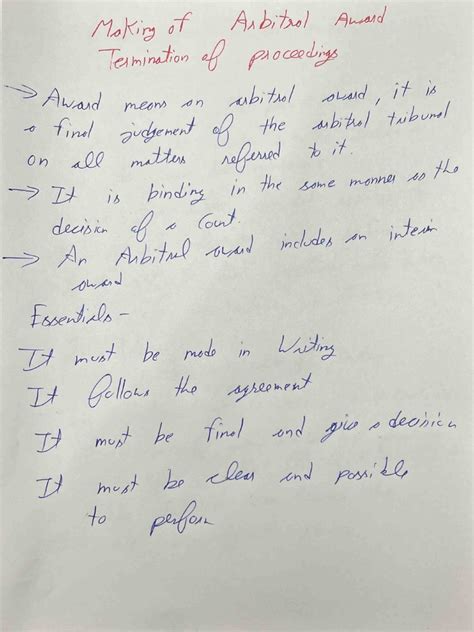 Making of Arbitral Award
Termination of proceedings
→ Award means an arbitral award, it is
a final judgement of the arbitral tribunal
on all matters referred to it.
→ It is binding in the same manner as the
decision of a Court.
→ An Arbitral award includes an interim
award
Essentials -
It must be made in Writing
It follows the agreement
It must be final and give a decision
It must be clear and possible
to perform